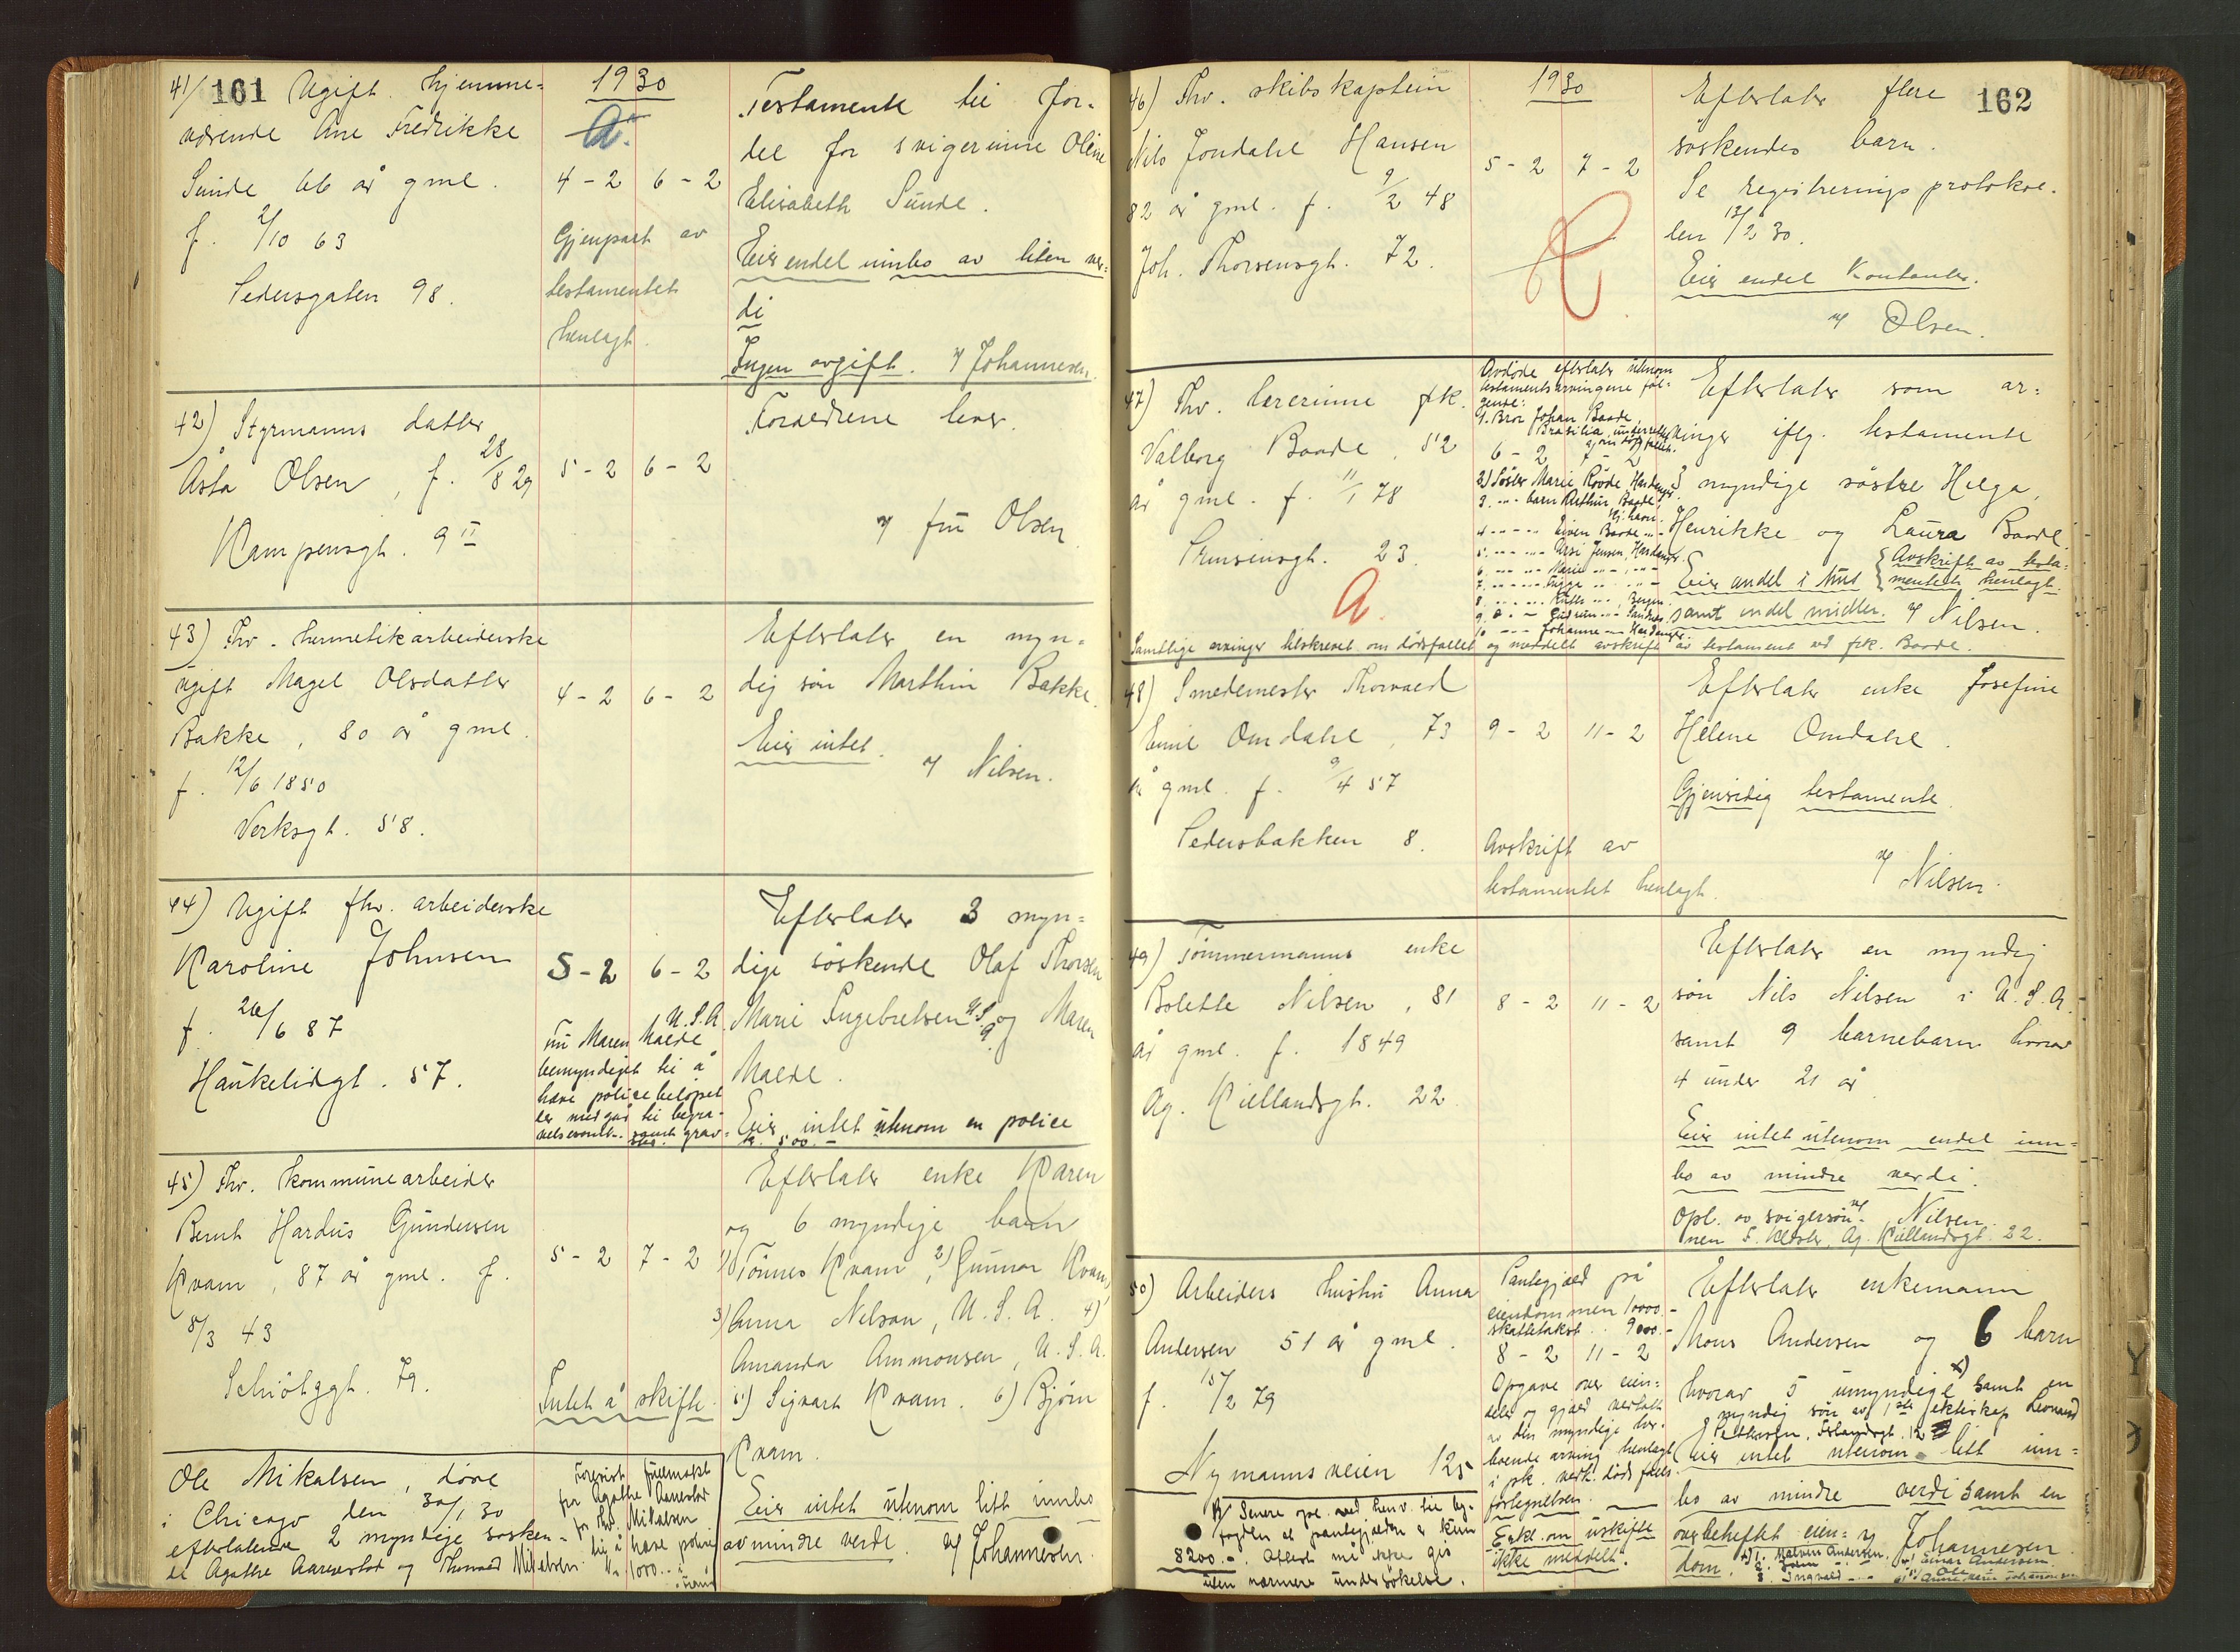 161
41/ Ugift hjemme-
værende Ane Fredrikke
Sunde 66 år gml.
f. 2/10 63
Pedersgaten 98.
1930
A.
4-2 6-2
Gjenpart av
testamentet
henlagt.
Testamente til for-
del for svigerinne Oline
Elisabeth Sunde.
Eier endel innbo av liten ver-
di
Ingen avgift. Johannesen.
42) Styrmanns datter
Åsta Olsen, f. 28/8 29
Kampensgt. 9 II
5-2 6-2
Foreldrene lever.
fru Olsen
43) Fhv. hermetikarbeiderske
ugift Magel Olsdatter
Bakke, 80 år gml.
f. 12/6 1850
Verksgt. 58.
4-2 6-2
Efterlater en myn-
dig sön Marthin Bakke.
Eier intet.
Nilsen.
44) Ugift fhv. arbeiderske
Karoline Johnsen
f. 26/6 87
Haukelidgt. 57.
5-2 6-2
U.S.A.
Fru Maren Malde
bemyndiget til å
heve policebelöpet
der medgår til begra-
velsesomk. samt grav-
Efterlater 3 myn-
dige söskende Olaf Thorsen
Marie Ingebretsen U.S.A. og Maren
Malde.
Eier intet utenom en police
kr. 500.-
45) Fhv. kommunearbeider
Bernt Hardus Gundersen
Kvam, 87 år gml. f.
8/3 43
Schiötzgt. 79.
5-2 7-2
Intet å skifte.
Efterlater enke Karen
og 6 myndige barn
1) Tönnes Kvam, 2) Gunnar Kvam,
3) Anna Nelson, U.S.A. 4)
Amanda Ammonsen, U.S.A.
5) Sigvart Kvam. 6) Björn
Kvam.
Eier intet utenom litt innbo
av mindre verdi. Johannesen.
Ole Mikalsen, döde
i Chicago den 30/1 30
efterlatende 2 myndige sösken-
de Agathe Aarrestad og Thorvald Mikalsen.
Forevist fullmakt
fra Agathe Aarrestad
for Thv. Mikalsen
til å heve police
kr. 1000.-
162
46) Fhv. skibskaptein
Nils Jondahl Hansen
82 år gml. f. 9/2 48
Joh. Thorsensgt. 72.
1930
5-2 7-2
Efterlater flere
söskendes barn.
Se registreringsprotokol-
len 12/2 30.
Eier endel kontanter.
Olsen.
47) Fhv. lærerinne frk.
Valborg Baade, 52
år gml. f. 11/1 78
Prinsensgt. 23.
A.
Avdöde efterlater utenom
testamentsarvingene föl-
gende:
1. Bror Johan Baade,
Brasilia, underrettet
om dödsfallet.
6-2 7-2
2) Söster Marie Rövde Hardanger.
3. -"- barn Arthur Baade,
4 -"- Eiven Baade -"-
5. -"- Arsi Jensen, Hardanger
6. -"- Marie -"-
7. -"-
8. -"- Ruth -"-, Bergen
9. -"- Gudrun -"- Sandnes
10 -"- Johanne -"- Hardanger.
Efterlater som ar-
vinger iflg. testamente
3 myndige söstre Helga,
Henrikke og Laura Baade.
Eier andel i hus
samt endel midler.
Avskrift av testa-
mentet henlagt.
Nilsen.
Samtlige arvinger tilskrevet om dödsfallet og meddelt avskrift av testament ved frk. Baade.
48) Smedemester Thorvald
Emil Omdahl, 73
år gml. f. 9/4 57
Pedersbakken 8.
9-2 11-2
Avskrift av
testamentet henlagt.
Efterlater enke Josefine
Helene Omdahl.
Gjensidig testamente.
Nilsen.
49) Tömmermanns enke
Bolette Nilsen, 81
år gml. f. 1849
Ag. Kiellandsgt. 22
8-2 11-2
Efterlater en myndig
sön Nils Nilsen i U.S.A.
samt 9 barnebarn hvorav
4 under 21 år
Eier intet utenom endel inn-
bo av mindre verdi.
Opl. av svigersön- Nilsen.
nen Ag. Kiellandsgt. 22.
50) Arbeiders hustru Anna
Andersen 51 år gml.
f. 15/2 79
Nymannsveien 125
Pantegjeld på
eiendommen 10000.-
skattetakst 9000.-
8-2 11-2
Opgave over eien-
deler og gjeld vedtatt
av den myndige her-
boende arving henlagt
i pk. vedk. dödsfalls-
fortegnelsen.
Erkl. om uskifte
ikke meddelt.
Senere opl. ved henv. til by-
fogden at pantegjelden er kun
8200.-. Attest må ikke gis
uten nærmere undersökelse.
Efterlater enkemann
Mons Andersen og 6 barn
hvorav 5 umyndige x) samt en
myndig sön av 1ste ekteskap Leonard
Pettersen, 12
Eier intet utenom litt inn-
bo av mindre verdi samt en
overbeheftet eien-
dom.
Johannesen
x) 1. Malvin Andersen.
3. Ingvald -"-
4) Einar Andersen